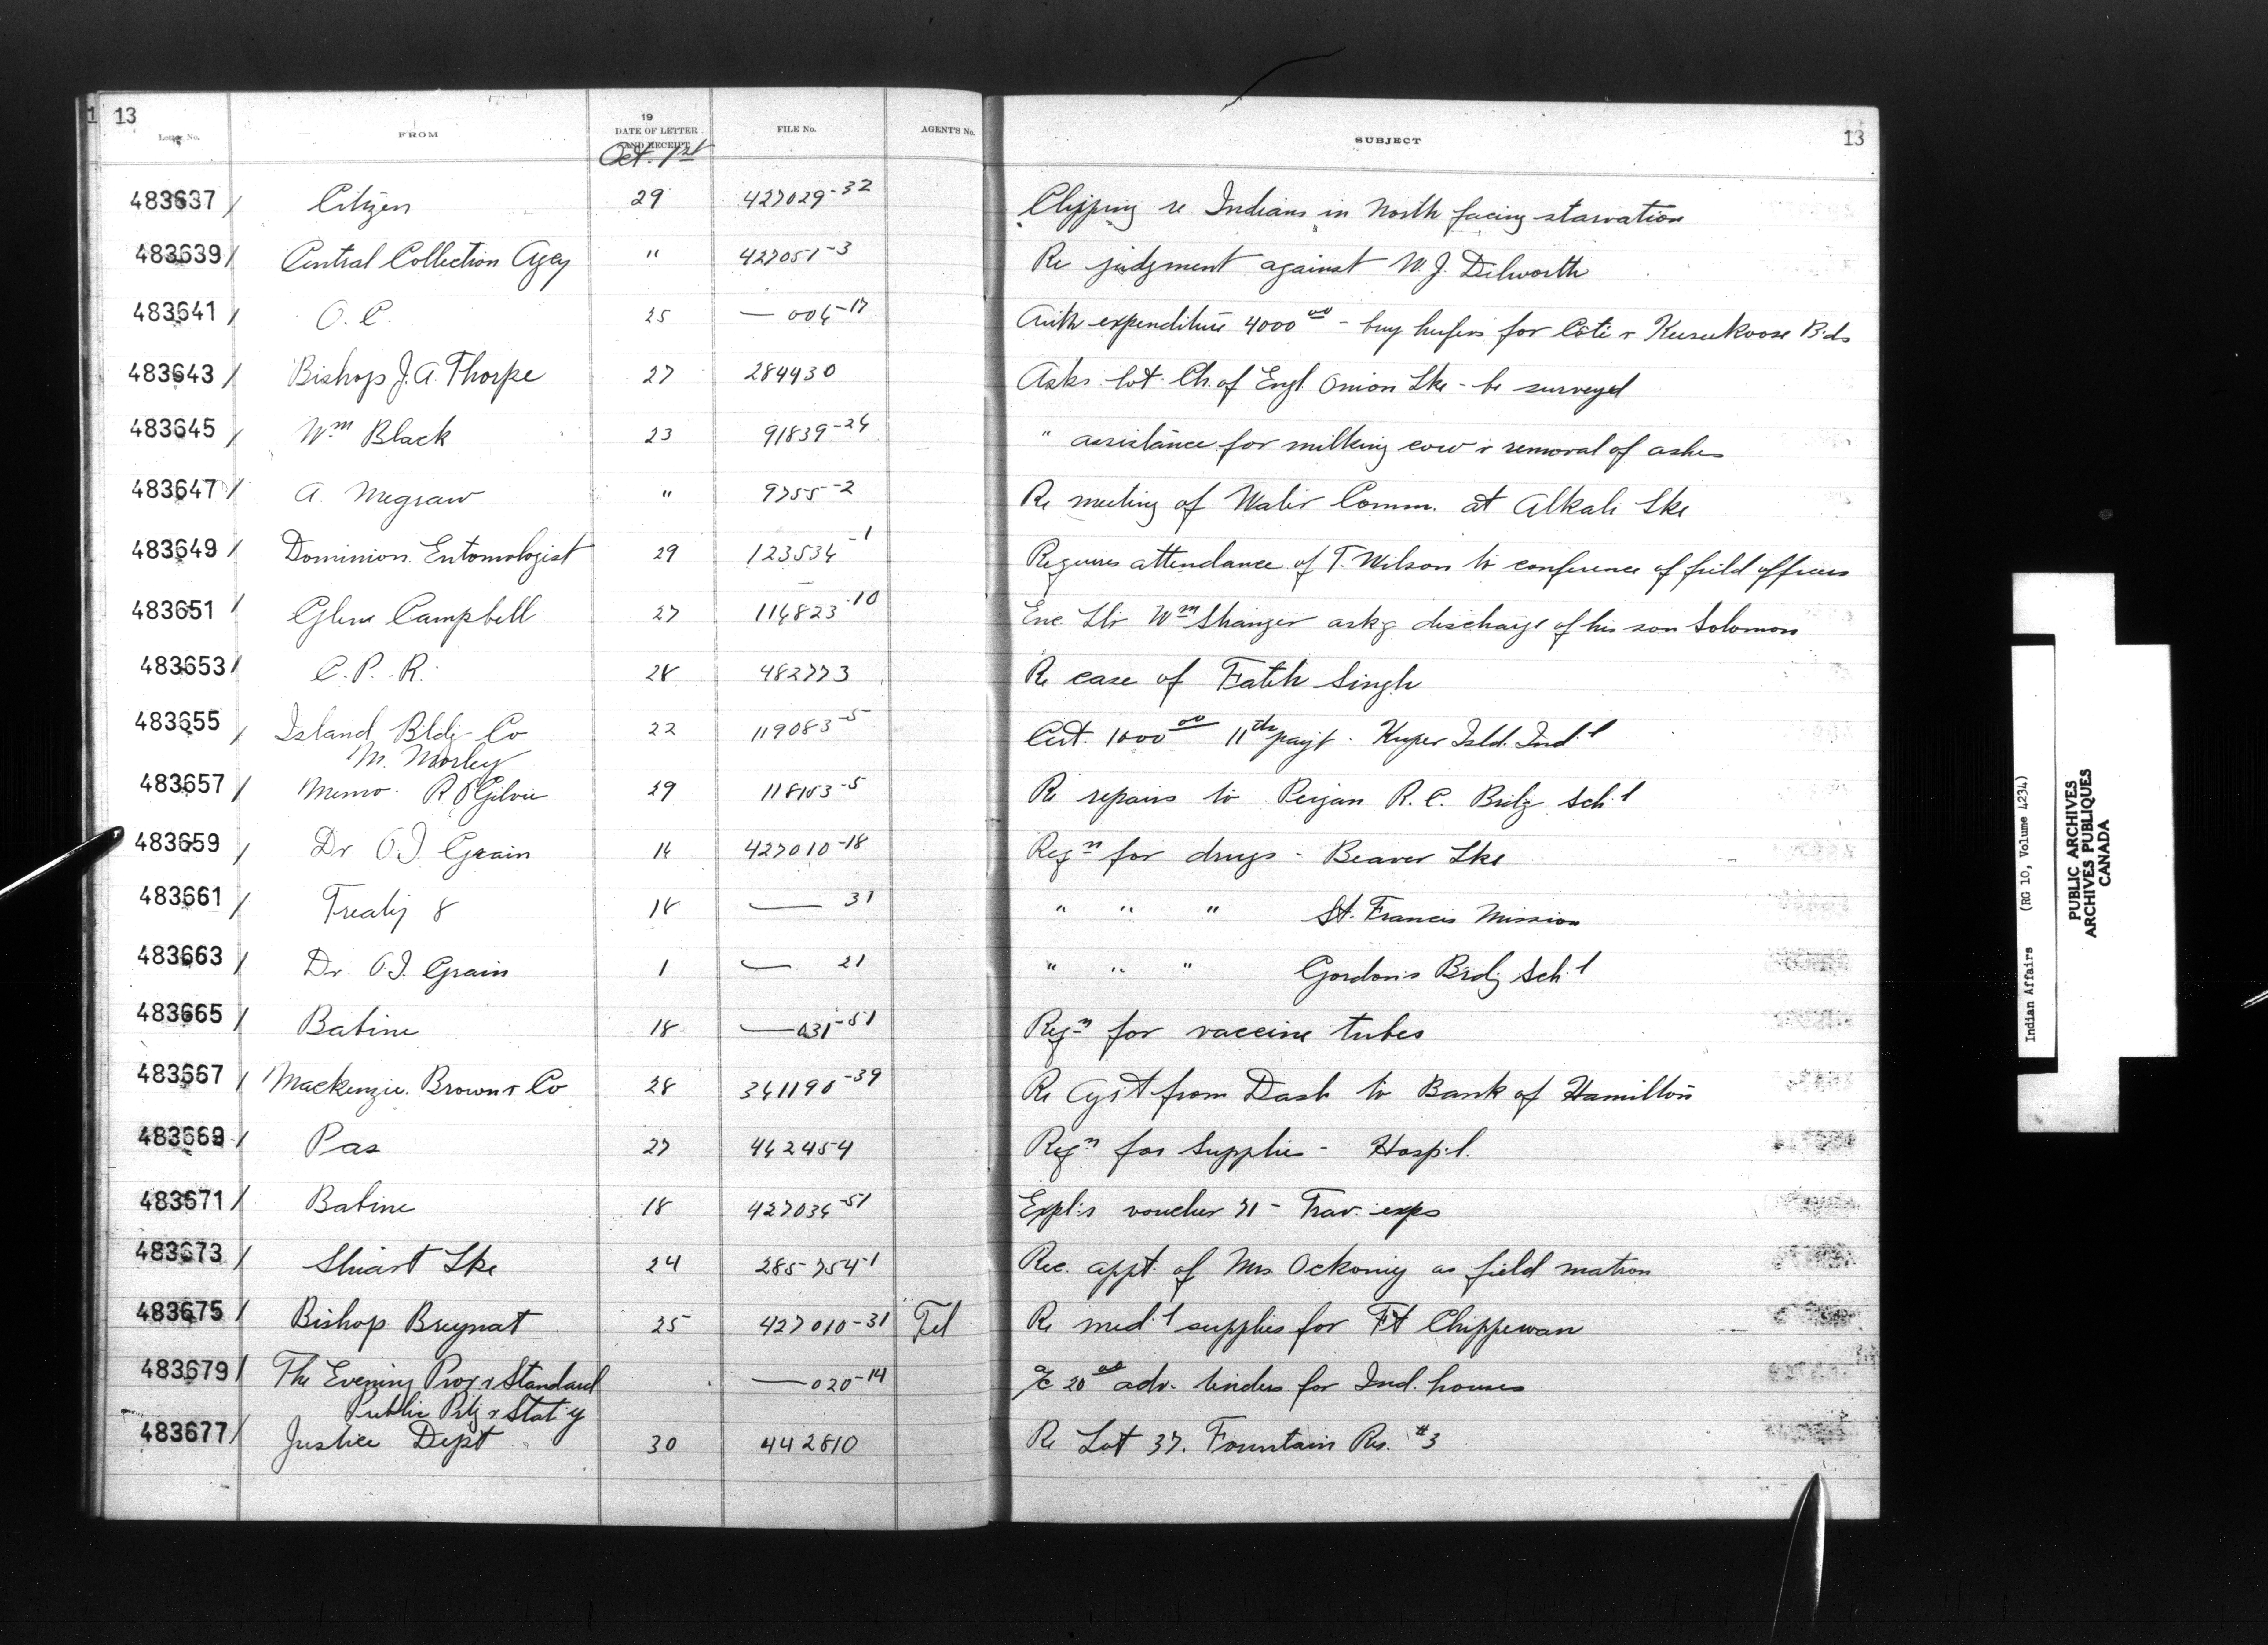 13
Letter No. FROM 19 DATE OF LETTER AND RECEIPT FILE No. AGENT'S No. SUBJECT 13
Oct. 1st
483637 / Citizen 29 427029-32 Clipping re Indians in North facing starvation
483639 / Central Collection Agcy " 427051-3 Re judgment against W. J. Dilworth
483641 / O. C. 25 — 004-17 Auth expenditure 4000 00 - buy heifers for Cote & Keeseekoose Bds
483643 / Bishop J. A. Thorpe 27 284430 Asks lot Ch. of Engl. Onion Lke - be surveyed
483645 / Wm Black 23 91839-24 " assistance for milking cow & removal of ashes
483647 / A. Megraw " 9755-2 Re meeting of Water Comm. at Alkali Lke
483649 / Dominion Entomologist 29 123534-1 Requires attendance of T. Wilson to conference of field officers
483651 / Glen Campbell 27 114823-10 Enc. Ltr Wm askg discharge of his son Solomon
483653 / C. P. R. 28 482773 Re case of Fateh Singh
483655 / Island Bldg Co 22 119083-5 Cert. 1000 00 11th payt. Kuper Isld. Ind.l
M. Morley
483657 / Memo. R OGilvie 29 118153-5 Re repairs to Peigan R. C. Brdg Sch.l
483659 / Dr O. I. Grain 14 427010-18 Reqn for drugs - Beaver Lke
483661 / Treaty 8 18 — 31 " " " St. Francis Mission
483663 / Dr O. I. Grain 1 — 21 " " " Gordons Brdg Sch.l
483665 / Babine 18 — 031-51 Reqn for vaccine tubes
483667 / Mackenzie. Brown & Co 28 341190-39 Re Agst from Dash to Bank of Hamilton
483669 / Pas 27 442454 Reqn for supplies - Hosp.l.
483671 / Babine 18 427034-51 Expl.s voucher 71 - Trav. exps
483673 / Stuart Lke 24 285754-1 Rec. appt. of Mrs Ockoniy as field matron
483675 / Bishop Breynat 25 427010-31 Tel Re med.l supplies for Ft Chippewan
483679 / The Evening Prog & Standard — 020-14 a/c 20 00 adv. tenders for Ind. houses
Public Prtg & Stat'y
483677 / Justice Dept 30 442810 Re Lot 37. Fountain Res. #3
Indian Affairs (RG 10, Volume 4234)
PUBLIC ARCHIVES
ARCHIVES PUBLIQUES
CANADA